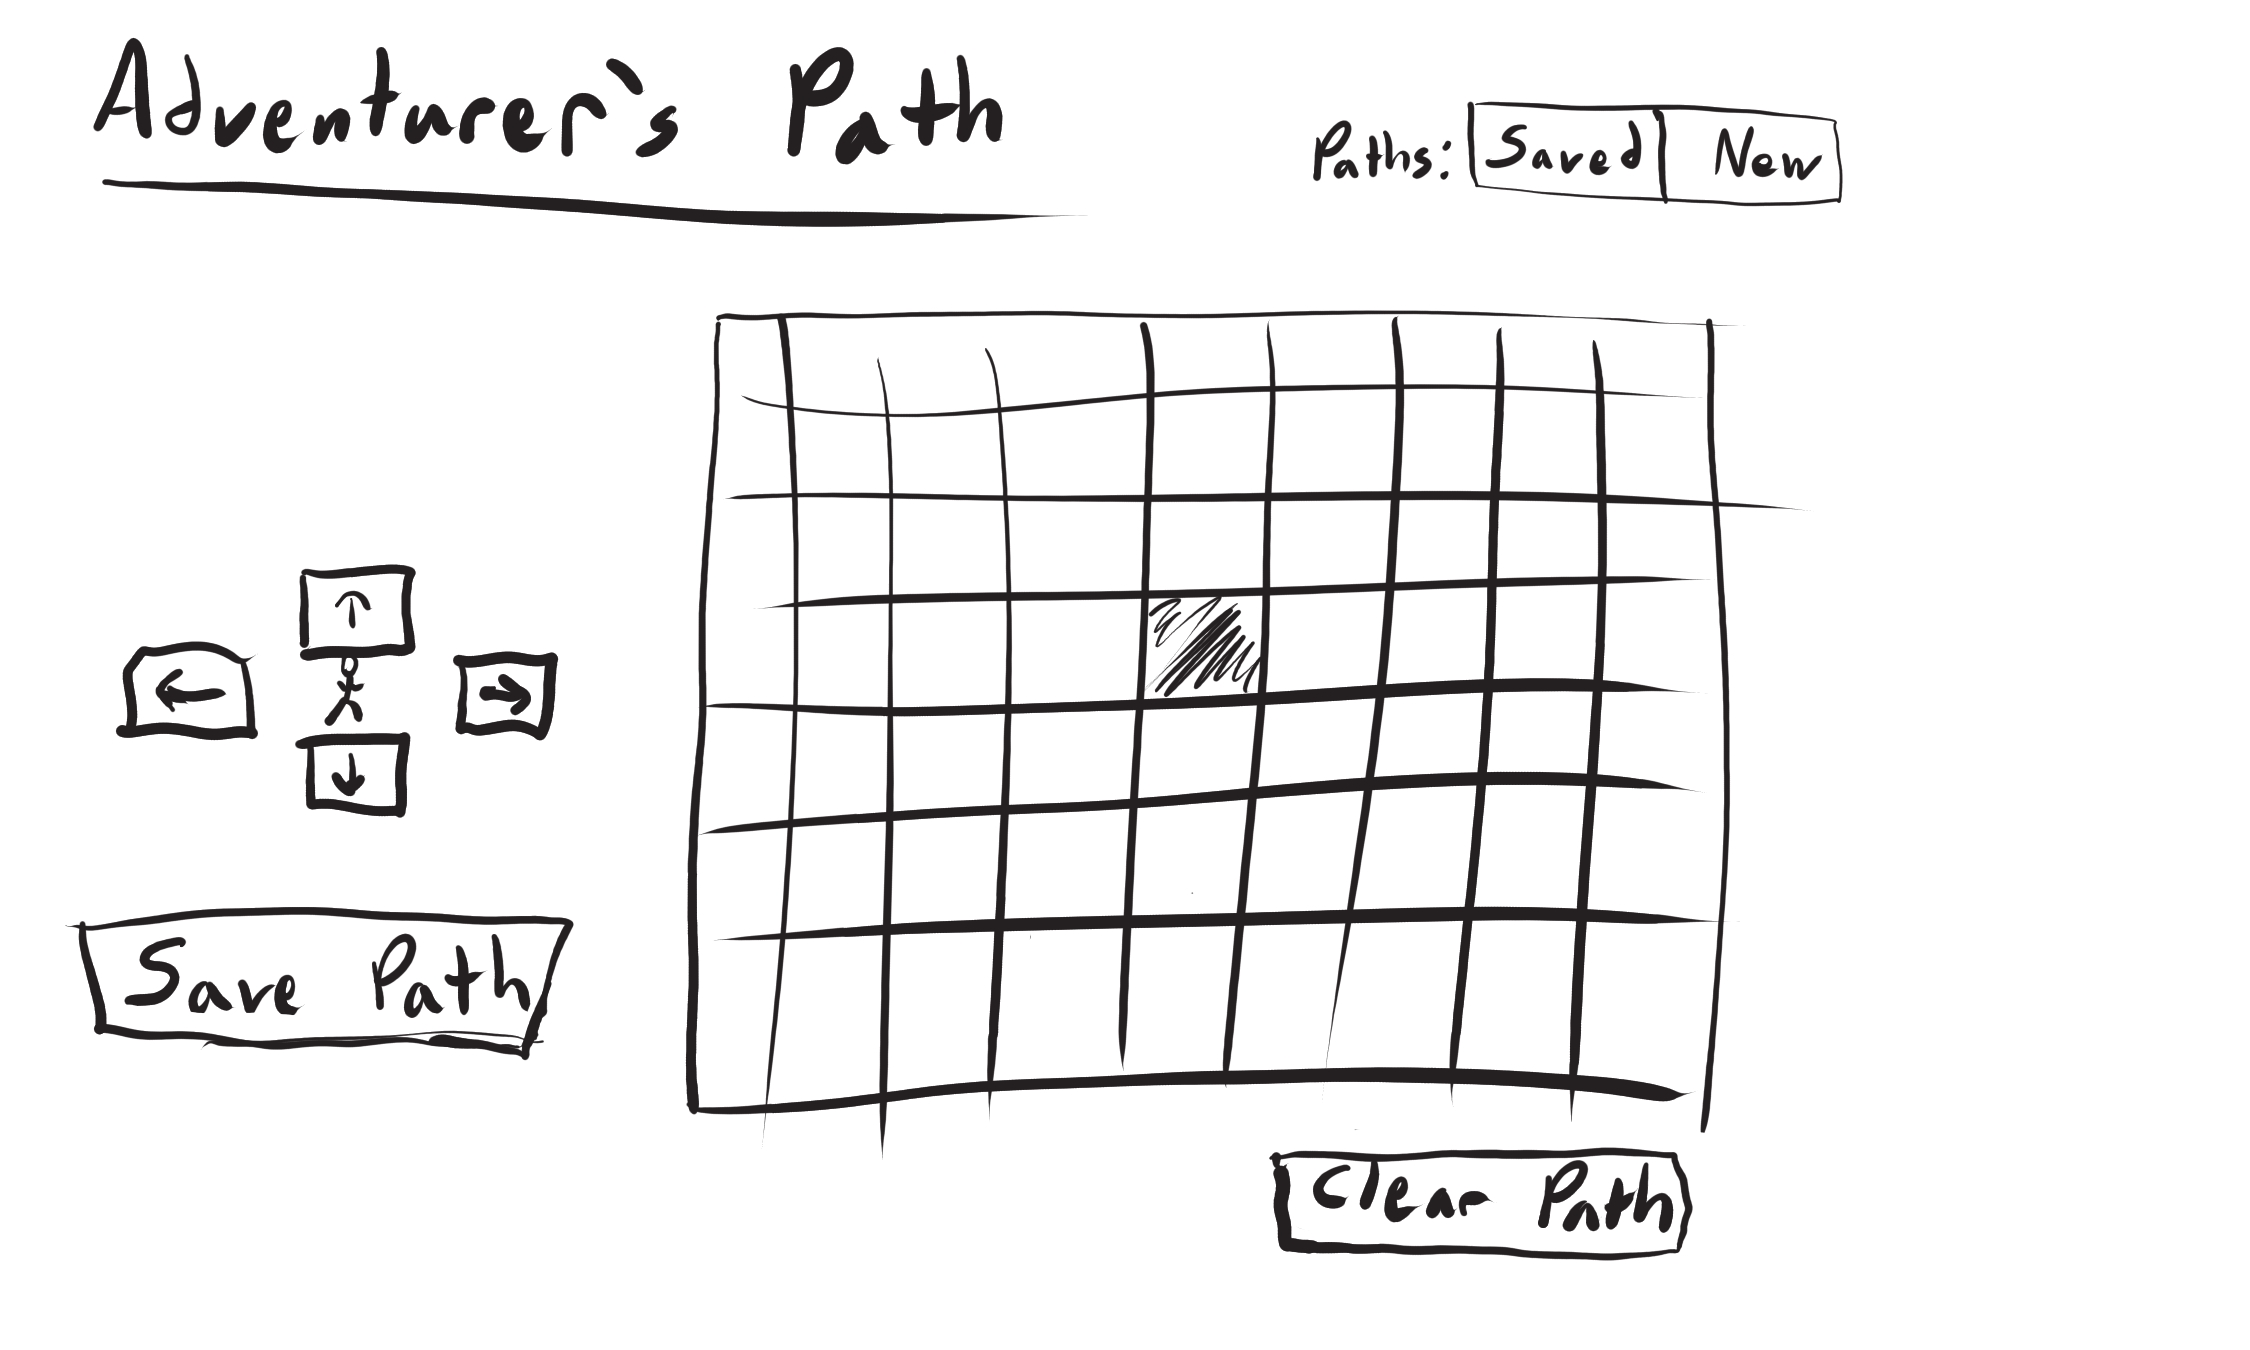 Adventurer's Path
Paths: Saved New
↑
← →
↓
Save Path
Clear Path